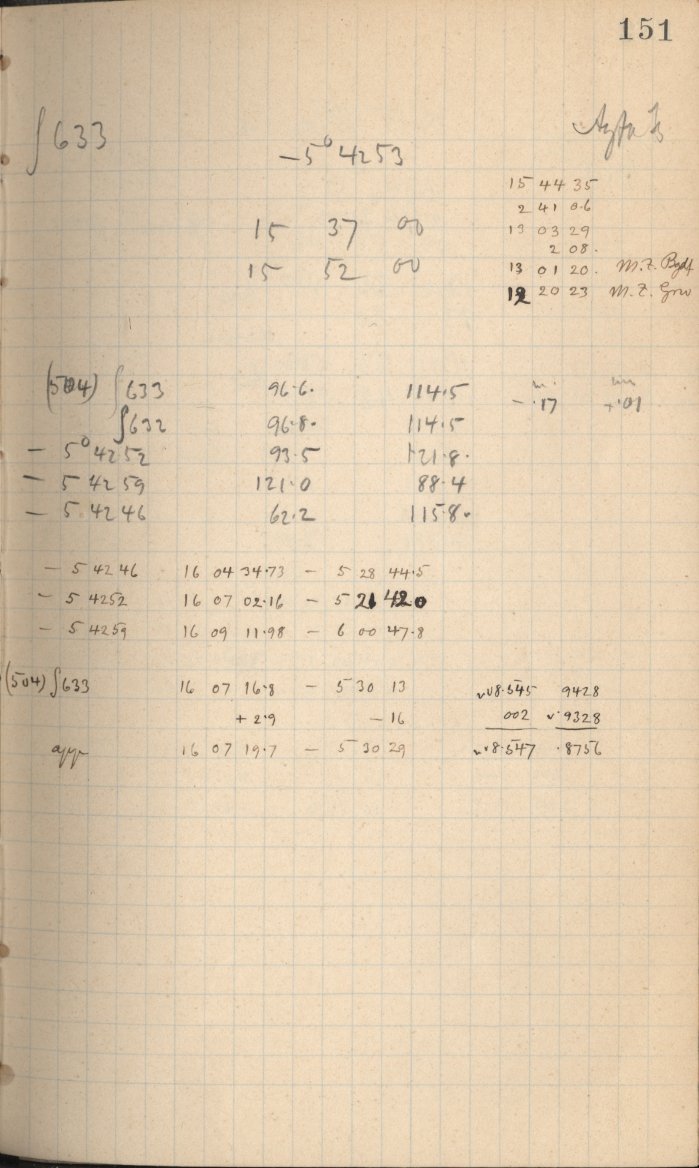 151
∫633
−5° 4253
15 44 35
2 41 06
15 37 00
13 03 29
2 08.
15 52 00
13 01 20. M.Z.
12 20 23 M.Z.
(504) ∫633 96.6. 114.5 −.17 +.01
∫632 96.8. 114.5
− 5° 4252 93.5 121.8.
− 5 4259 121.0 88.4
− 5 4246 62.2 115.8.
− 5 4246 16 04 34.73 − 5 28 44.5
− 5 4252 16 07 02.16 − 5 21 42 0
− 5 4259 16 09 11.98 − 6 00 47.8
(504) ∫633 16 07 16.8 − 5 30 13 8.545 9428
+ 2.9 − 16 002 9328
app 16 07 19.7 − 5 30 29 8.547 .8756